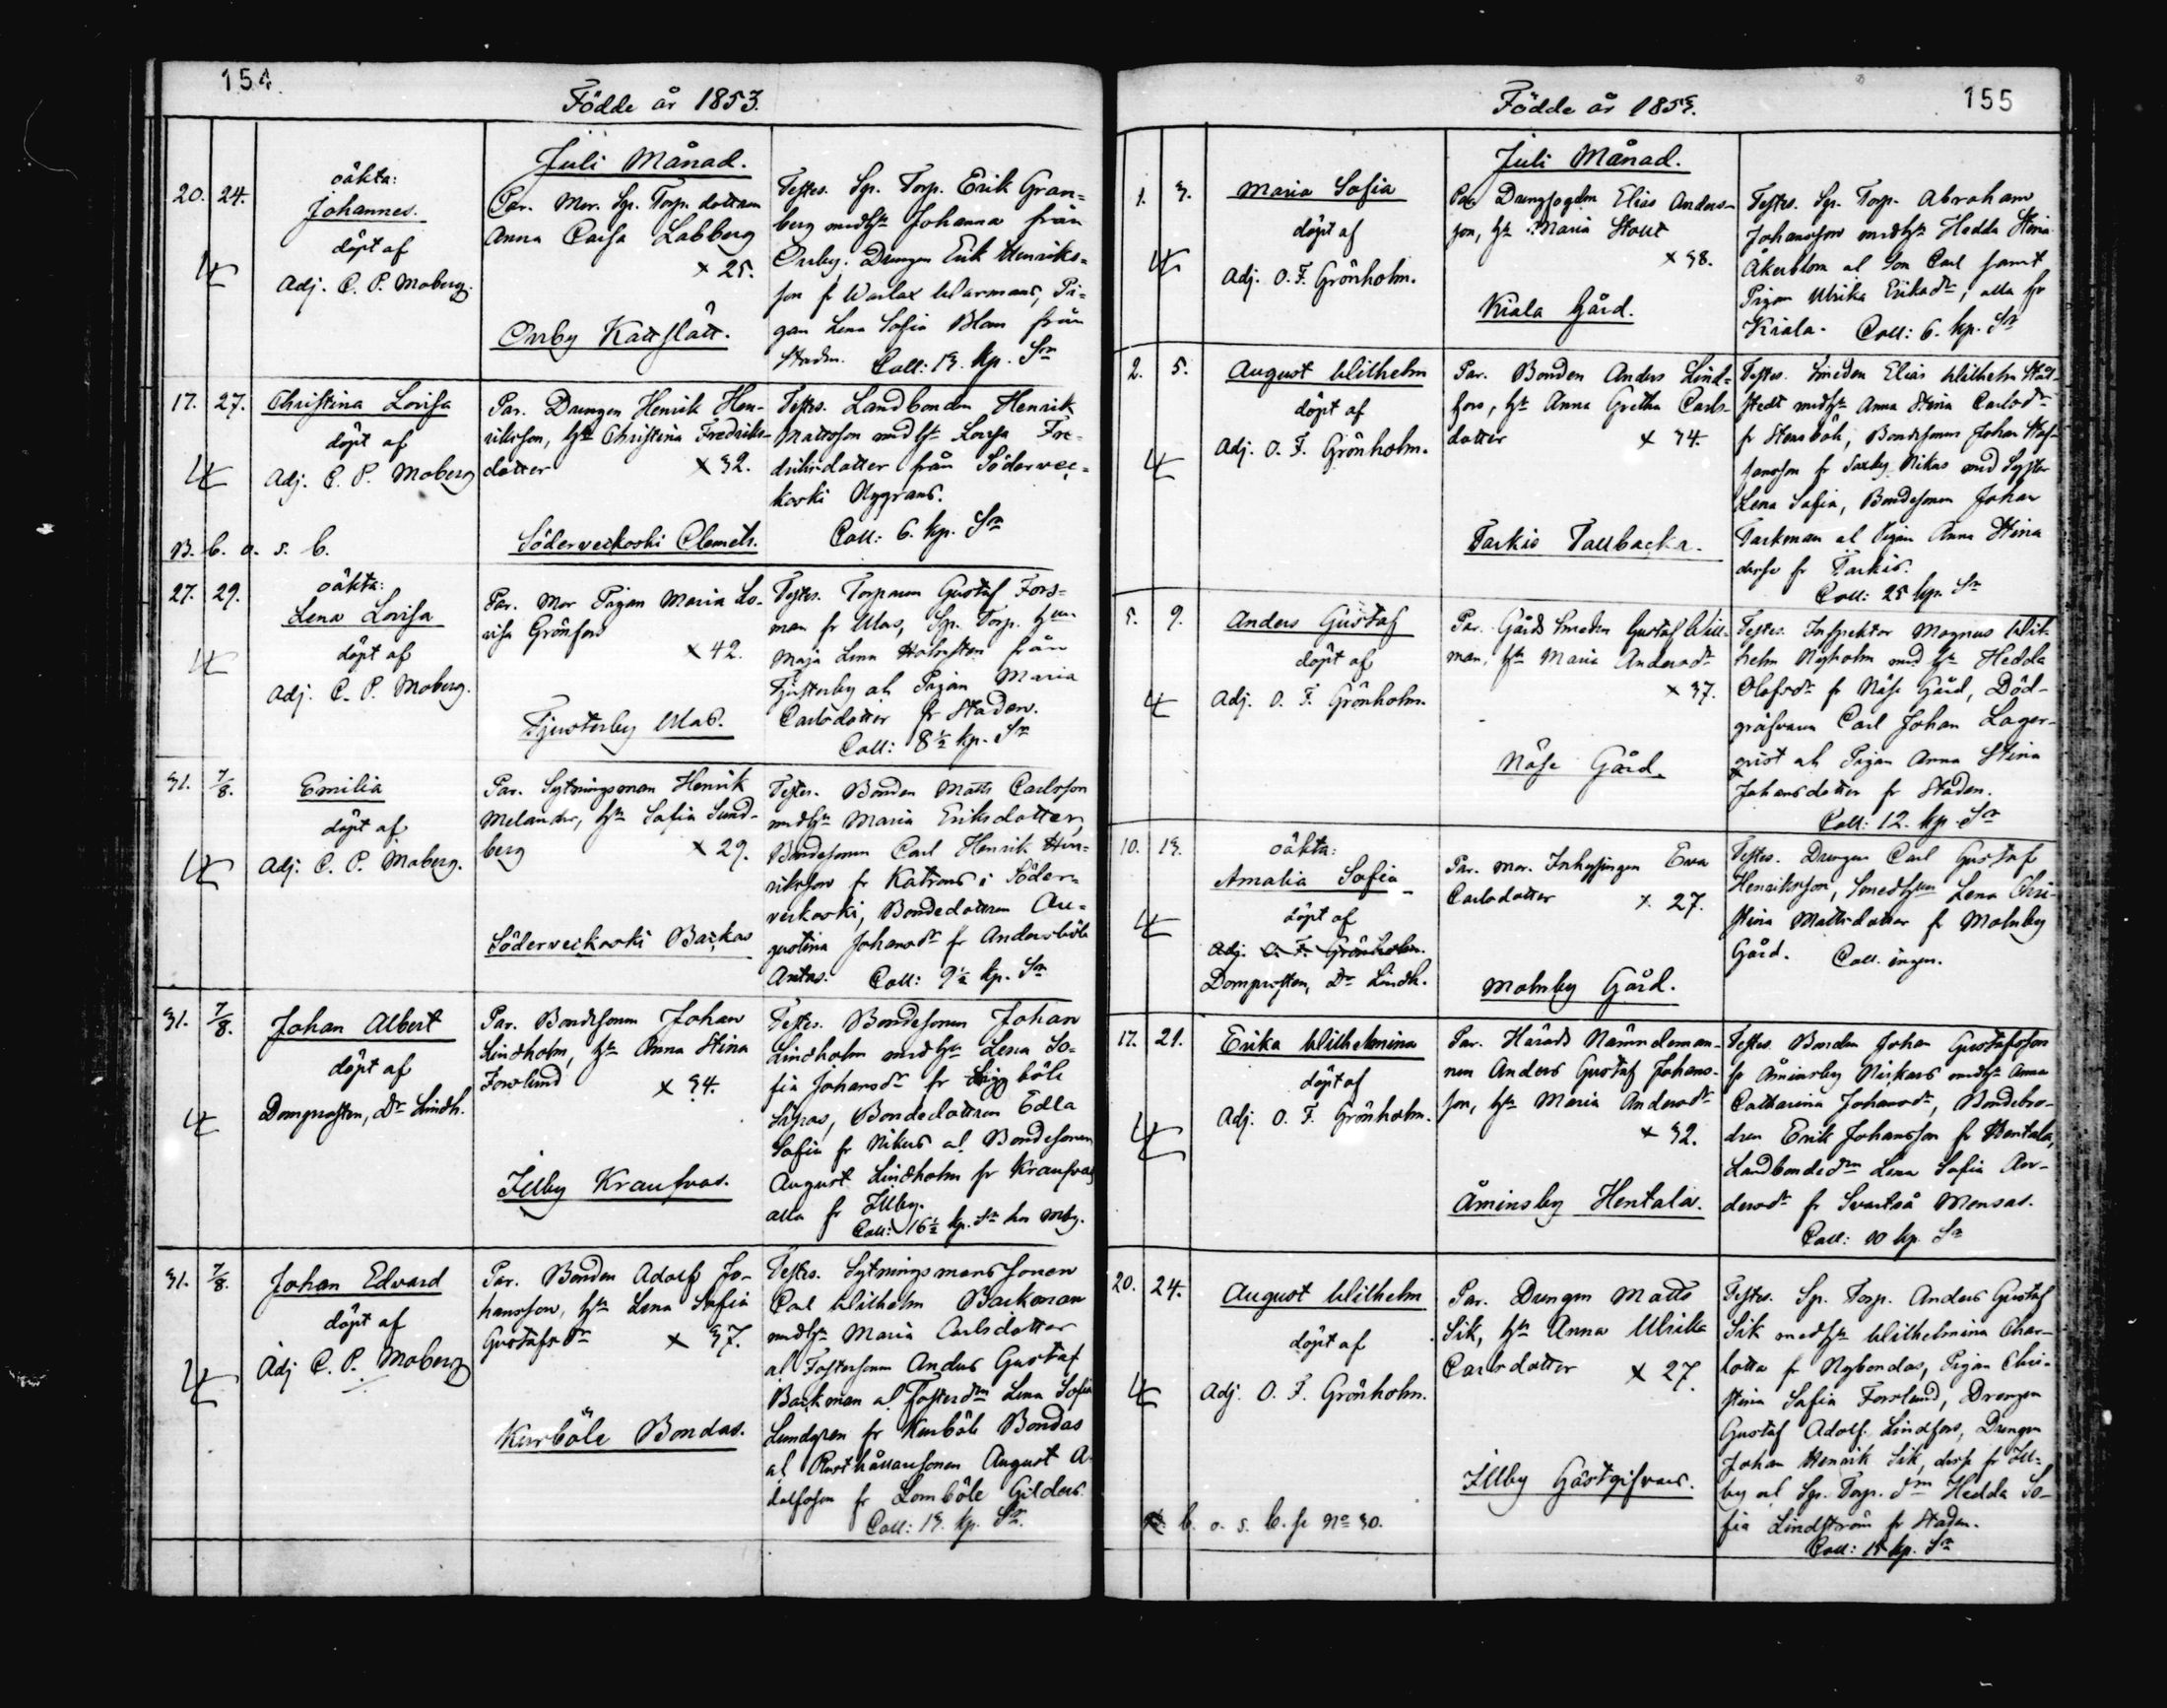 154.
Födde år 1853.
Juli Månad.
20. 24.
oäkta:
Johannes.
döpt af
Adj. C. P. Moberg.
Par. Mor. Sp. Torp. dottren
Anna Caisa Labberg
× 25.
Orrby Kattslätt.
Testes. Sp. Torp. Erik Gran-
berg med hu Johanna från
Orrby, Drengen Erik Henriks-
son fr Warlax Warmans, Pi-
gan Lena Sofia Blom från
Staden. Coll: 13. kp. Sr
17. 27.
Christina Lovisa
döpt af
Adj. C. P. Moberg
Par. Drengen Henrik Hen-
riksson, hu Christina Fredriks-
dotter × 32.
Söderveckoski Clemets.
Testes. Landbonden Henrik
Mattsson med hu Lovisa Fre-
driksdotter från Södervec-
koski Nygrans.
Coll: 6. kp. Sr
B. b. o. s. b.
27. 29.
oäkta:
Lena Lovisa
döpt af
Adj. C. P. Moberg.
Par. Mor Pigan Maria Lo-
visa Grönfors
× 42.
Tjusterby Mas.
Testes. Torparen Gustaf Fors-
man fr Mas, Sp. Torp. hun
Maja Lena Holmsten från
Tjusterby och Pigan Maria
Carlsdotter fr Staden.
Coll: 8½ kp. Sr
31. 7/8.
Emilia
döpt af
Adj. C. P. Moberg.
Par. Sytningsman Henrik
Melander, hu Sofia Sund-
berg × 29.
Söderveckoski Backas
Testes. Bonden Matts Carlsson
med hu Maria Eriksdotter,
Bondesonen Carl Henrik Hen-
riksson fr Katrens i Söder-
veckoski, Bondedottren Au-
gustina Johansdr fr Andersböle
Antas. Coll: 9½ kp. Sr
31. 7/8.
Johan Albert
döpt af
Domprosten, Dr Lindh.
Par. Bondesonen Johan
Lindholm, hu Anna Stina
Forslund × 34.
Illby Kraufvas.
Testes. Bondesonen Johan
Lindholm med hu Lena So-
fia Johansdr fr böle
Bondedottren Edla
Sofia fr Nikus al Bondesonen
August Lindholm fr Kraufvas
alla fr Illby.
Coll: 16½ kp. Sr hos Mbg.
31. 7/8.
Johan Edvard
döpt af
Adj C. P. Moberg
Par. Bonden Adolf Jo-
hansson, hu Lena Sofia
Gustafsdr × 37.
Kurböle Bondas.
Testes. Sytningsmans sonen
Carl Wilhelm Backman
med hu Maria Carlsdotter
al Fostersonen Anders Gustaf
Backman al Fosterdn Lena Sofia
Lundgren fr Kurböle Bondas
al Rusthållaresonen August A-
dolfsson fr Lomböle Gilders.
Coll: 13. kp. Sr.
155
Födde år 1853.
Juli Månad.
1. 3.
Maria Sofia
döpt af
Adj. O. F. Grönholm.
Par Drengfogden Elias Anders-
son, hu Maria Stout
× 38.
Kiala Gård.
Testes. Sp. Torp. Abraham
Johansson med hu Hedda Stina
Åkerblom al Son Carl samt
Pigan Ulrika Eriksdr, alla fr
Kiala. Coll: 6. kp. Sr
2. 5.
August Wilhelm
döpt af
Adj. O. F. Grönholm.
Par. Bonden Anders Lind-
fors, hu Anna Gretha Carls-
dotter × 34.
Tarkis Tallbacka.
Testes. Smeden Elias Wilhelm Stål-
stedt med hu Anna Stina Carlsdr
fr Stensböle, Bondesonen Johan Staf-
fansson fr Saxby Nikus med Syster
Lena Sofia, Bondesonen Johan
Tarkman al Pigan Anna Stina
desse fr Tarkis.
Coll: 25 kp. Sr
5. 9.
Anders Gustaf
döpt af
Adj. O. F. Grönholm.
Par. Gårds Smeden Gustaf Will-
man, hu Maria Andersdr
× 37.
Näse Gård.
Testes. Inspektor Magnus Wil-
helm Nyholm med hu Hedda
Olofsdr fr Näse Gård, Död-
gräfvaren Carl Johan Lager-
qvist och Pigan Anna Stina
Johansdotter fr Staden.
Coll: 12. kp. Sr
10. 13.
oäkta:
Amalia Sofia
döpt af
Adj. O. F. Grönholm.
Domprosten, Dr Lindh.
Par. Mor. Inhysingen Ewa
Carlsdotter × 27.
Molnby Gård.
Testes. Drengen Carl Gustaf
Henriksson, Smedhun Lena Chri-
stina Mattsdotter fr Molnby
Gård. Coll. ingen.
17. 21.
Erika Wilhelmina
döpt af
Adj. O. F. Grönholm.
Par. Härads Nämndeman-
nen Anders Gustaf Johans-
son, hu Maria Andersdr
× 32.
Åminsby Hentala.
Testes. Bonden Johan Gustafsson
fr Åminsby Nickars med hu Anna
Catharina Johansdr, Bondebro-
dren Erik Johansson fr Hentala,
Landbondedrn Lena Sofia An-
dersdr fr Svartså Mensas.
Coll: 10 kp. Sr
20. 24.
August Wilhelm
döpt af
Adj. O. F. Grönholm.
Par. Drengen Matts
Sik, hu Anna Ulrika
Carlsdotter × 27.
Illby Gästgifvars.
Testes. Sp. Torp. Anders Gustaf
Sik med hu Wilhelmina Char-
lotta fr Nybondas, Pigan Chri-
stina Sofia Forslund, Drengen
Gustaf Adolf Lindfors, Drengen
Johan Henrik Sik, desse fr Ill-
by al Sp. Torp. drn Hedda So-
fia Lindström fr Staden.
Coll: 15 kp. Sr
B. b. o. s. b. se No 30.